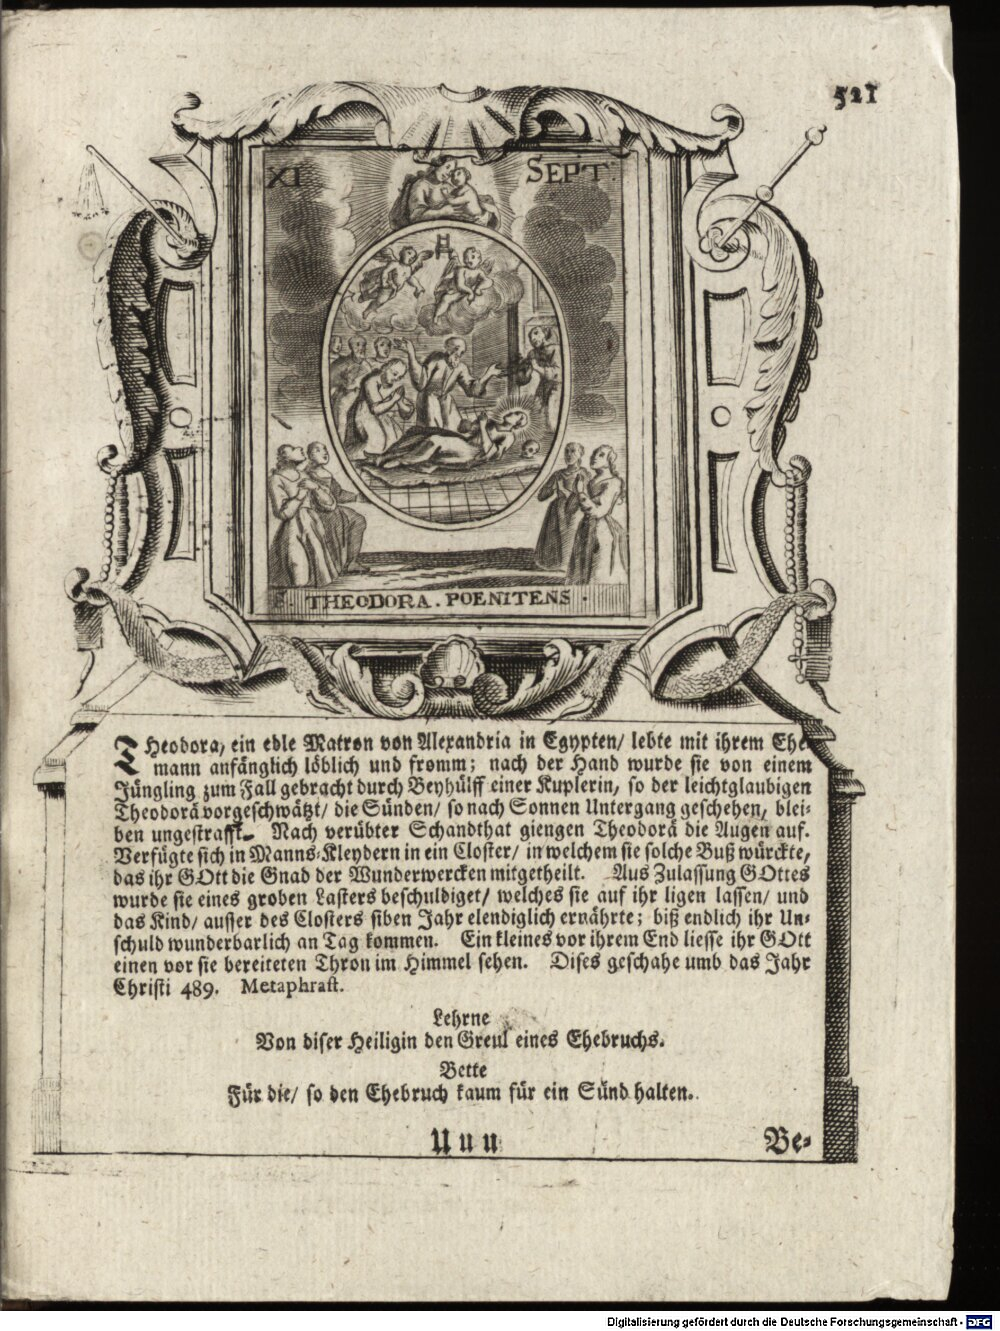 521
XI SEPT.
S. THEODORA. POENITENS.
THeodora, ein edle Matron von Alexandria in Egypten/ lebte mit ihrem Ehe-
mann anfänglich löblich und fromm; nach der Hand wurde sie von einem
Jüngling zum Fall gebracht durch Beyhülff einer Kuplerin, so der leichtglaubigen
Theodorä vorgeschwätzt/ die Sünden/ so nach Sonnen Untergang geschehen, blei-
ben ungestrafft. Nach verübter Schandthat giengen Theodorä die Augen auf.
Verfügte sich in Manns-Kleydern in ein Closter/ in welchem sie solche Buß würckte,
das ihr GOtt die Gnad der Wunderwercken mitgetheilt. Aus Zulassung GOttes
wurde sie eines groben Lasters beschuldiget/ welches sie auf ihr ligen lassen/ und
das Kind/ ausser des Closters siben Jahr elendiglich ernährte; biß endlich ihr Un-
schuld wunderbarlich an Tag kommen. Ein kleines vor ihrem End liesse ihr GOtt
einen vor sie bereiteten Thron im Himmel sehen. Dises geschahe umb das Jahr
Christi 489. Metaphrast.
Lehrne
Von diser Heiligin den Greul eines Ehebruchs.
Bette
Für die/ so den Ehebruch kaum für ein Sünd halten.
Uuu Be-
Digitalisierung gefördert durch die Deutsche Forschungsgemeinschaft - DFG